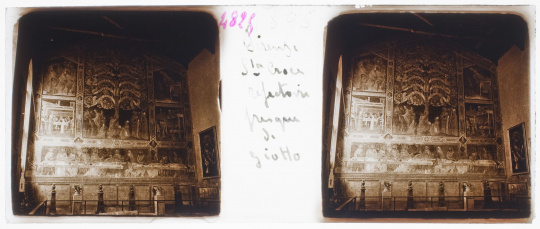 4828
Firenze
Sta Croce
refectoire
fresque
de
Giotto